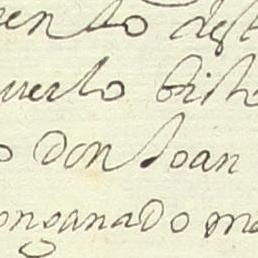 ento dest
uerto biste
o don Joan
onganado ma